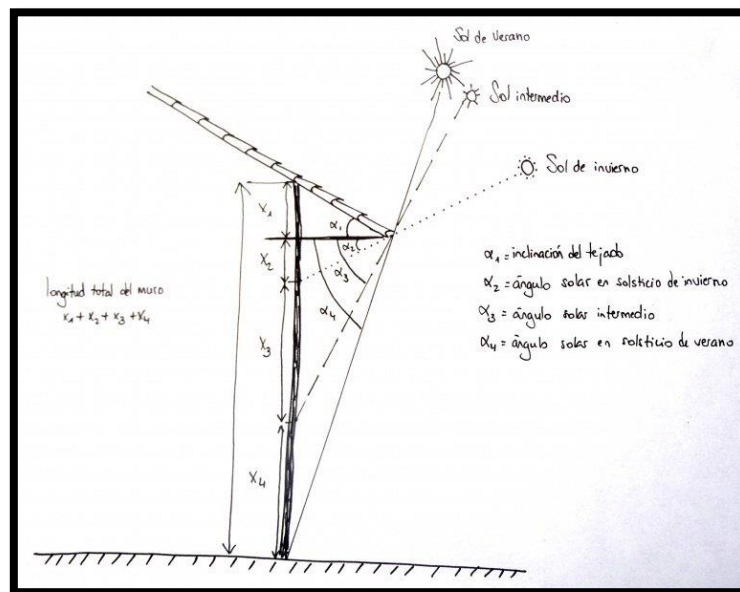 Sol de verano
Sol intermedio
Sol de invierno
X1
α1
α2
X2
α3
α4
longitud total del muro
x1 + x2 + x3 + x4
X3
X4
α1 = inclinación del tejado
α2 = ángulo solar en solsticio de invierno
α3 = ángulo solar intermedio
α4 = ángulo solar en solsticio de verano